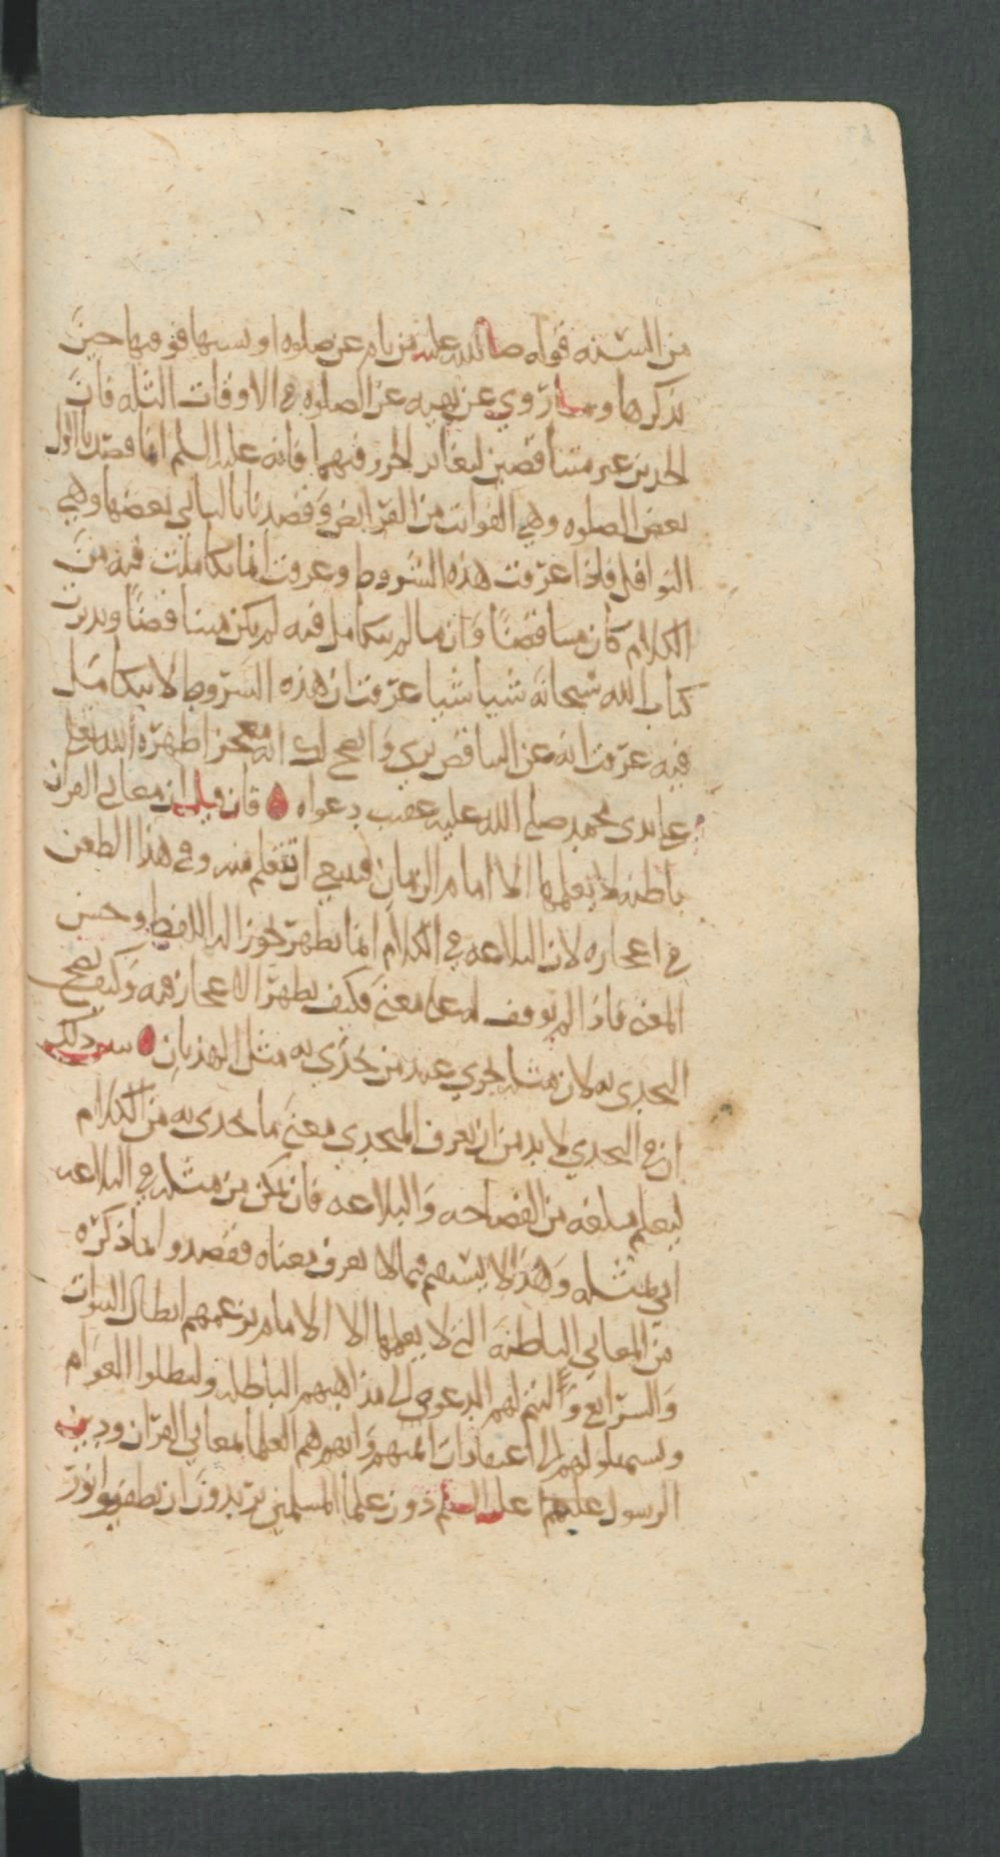 من السنه قوله صلى الله عليه من نام عن صلوه او نسيها فوقتها حين
يذكرها وما روي عن نهيه عن الصلوه في الاوقات الثلثه فان
الخبرين غير متناقضين لتغاير المخبر فيهما فانه عليه السلم انما قصد بالاول
بعض الصلوه وهي الفوائت من الفرايض وقصد بالثاني بعضها وهي
النوافل فاذا عرفت هذه الشروط وعرفت انما تكاملت فيه من
الكلام كان متناقضًا وان ما لم يتكامل فيه لم يكن متناقضًا وتدبرت
كتاب الله سبحانه شيا شيا عرفت ان هذه الشروط لا تتكامل
فيه عرفت انه عن التناقض بري وانضح لك انه معجز اظهره الله تعلى
على يدي محمد صلى الله عليه عقيب دعواه فان قيل ان معاني القران
باطنه لا يعلمها الا امام الزمان فينبغي ان تتعلم منه وفي هذا الطعن
في اعجازه لان البلاغه في الكلام انما تظهر بجوزاله اللفظ وحسن
المعنى فاذا لم يوقف له على معنى فكيف يظهر الاعجاز فيه وكيف يصح
التحدي به لان مثله يجري عند من تحدي به مثل الهذيان
ان في التحدي لا بد من ان يعرف المتحدي معنى ما تحدى به من الكلام
ليعلم مبلغه من الفصاحه والبلاغه فان تمكن من مثله في البلاغه
اتى بمثله وهذا لا يستقيم فيما لا يعرف معناه فقصدوا بما ذكره
من المعاني الباطنه التي لا يعلمها الا الامام بزعمهم ابطال النبوات
والشرايع وليتم لهم الدعوى الى مذاهبهم الباطله وليبطلوا العوام
ويستميلوا لهم الى اعتقادات ايمتهم وانهم هم العلما لمعاني القران ودين
الرسول عليهم عليه السلم دون علما المسلمين يريدون ان يطفيوا نور